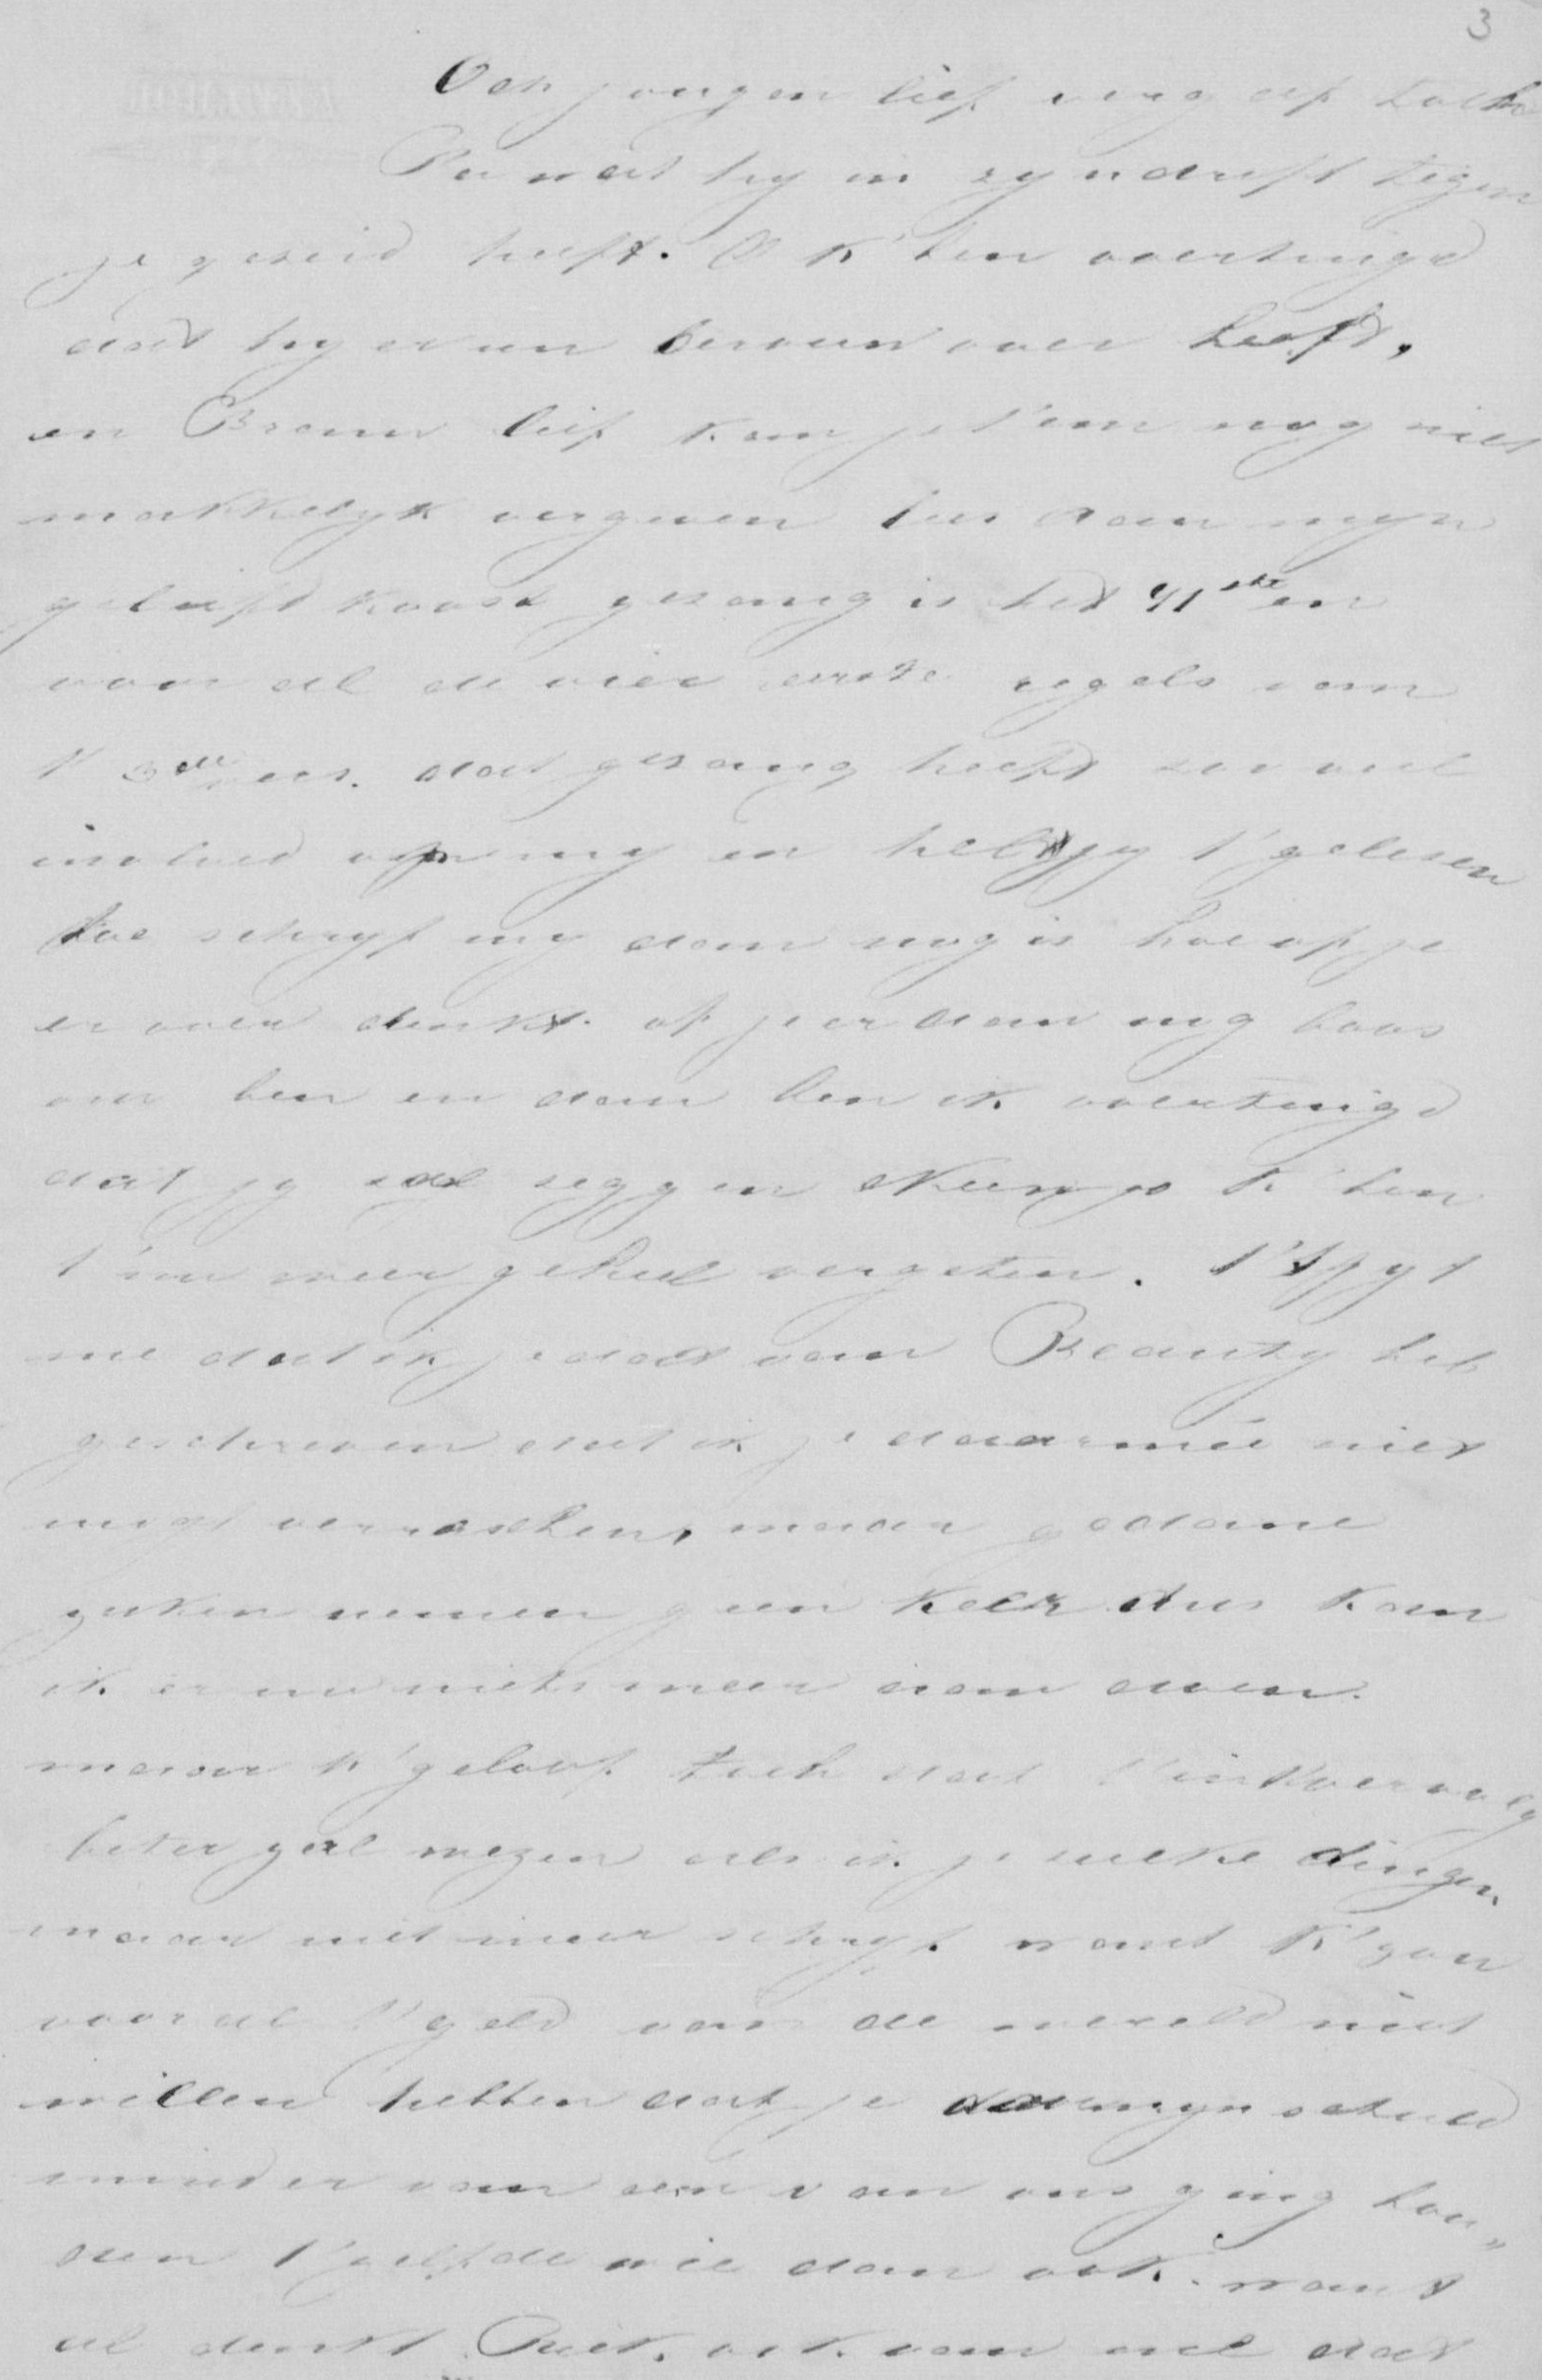 3
Och jongen lief vergeef toch
Pa wat hy in zyn drift tegen
je gezeid heeft. O k'ben overtuigd
dat hy er een berouw over heeft,
en Bram lief kan je t'em nog niet
makkelyk vergeven lees dan myn
geliefdkoost gezang is het 41ste en
vooral de vier eerste regels van
t 3de vers. dat gezang heeft zoo veel
invloed op my en heb jy t'gelezen
toe schryf my dan nog is hoe of je
er over denkt. of je er dan nog boos
over ben en dan ben ik overtuigd
dat jy zal zeggen Neen zo k'ben
t'nu weer geheel vergeten. t'Spyt
me dat ik je dat van Beauty heb
geschreven dat ik je daarmeê niet
mogt verrasschen, maar gedane
zaken nemen geen keer dus kan
ik er nu niets meer aan doen.
maar k'geloof toch dat t'in t vervolg
beter zal wezen als ik je zulke dingen
maar niet meer schryf want k'zou
voor al t'geld van de wereld niet
willen hebben dat je door myn schuld
minder van een van ons ging hou"
den t'zelfde wie dan ook. want
al denkt Piet. ook van me dat